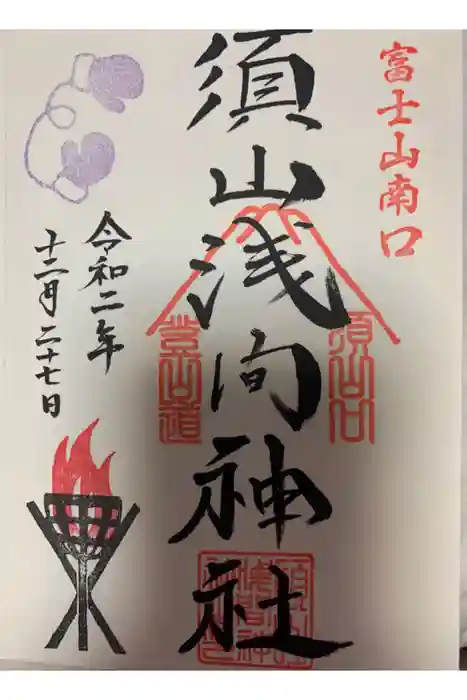 富士山南口
須山浅间神社
須山口
登山道
令和二年
十二月二十七日